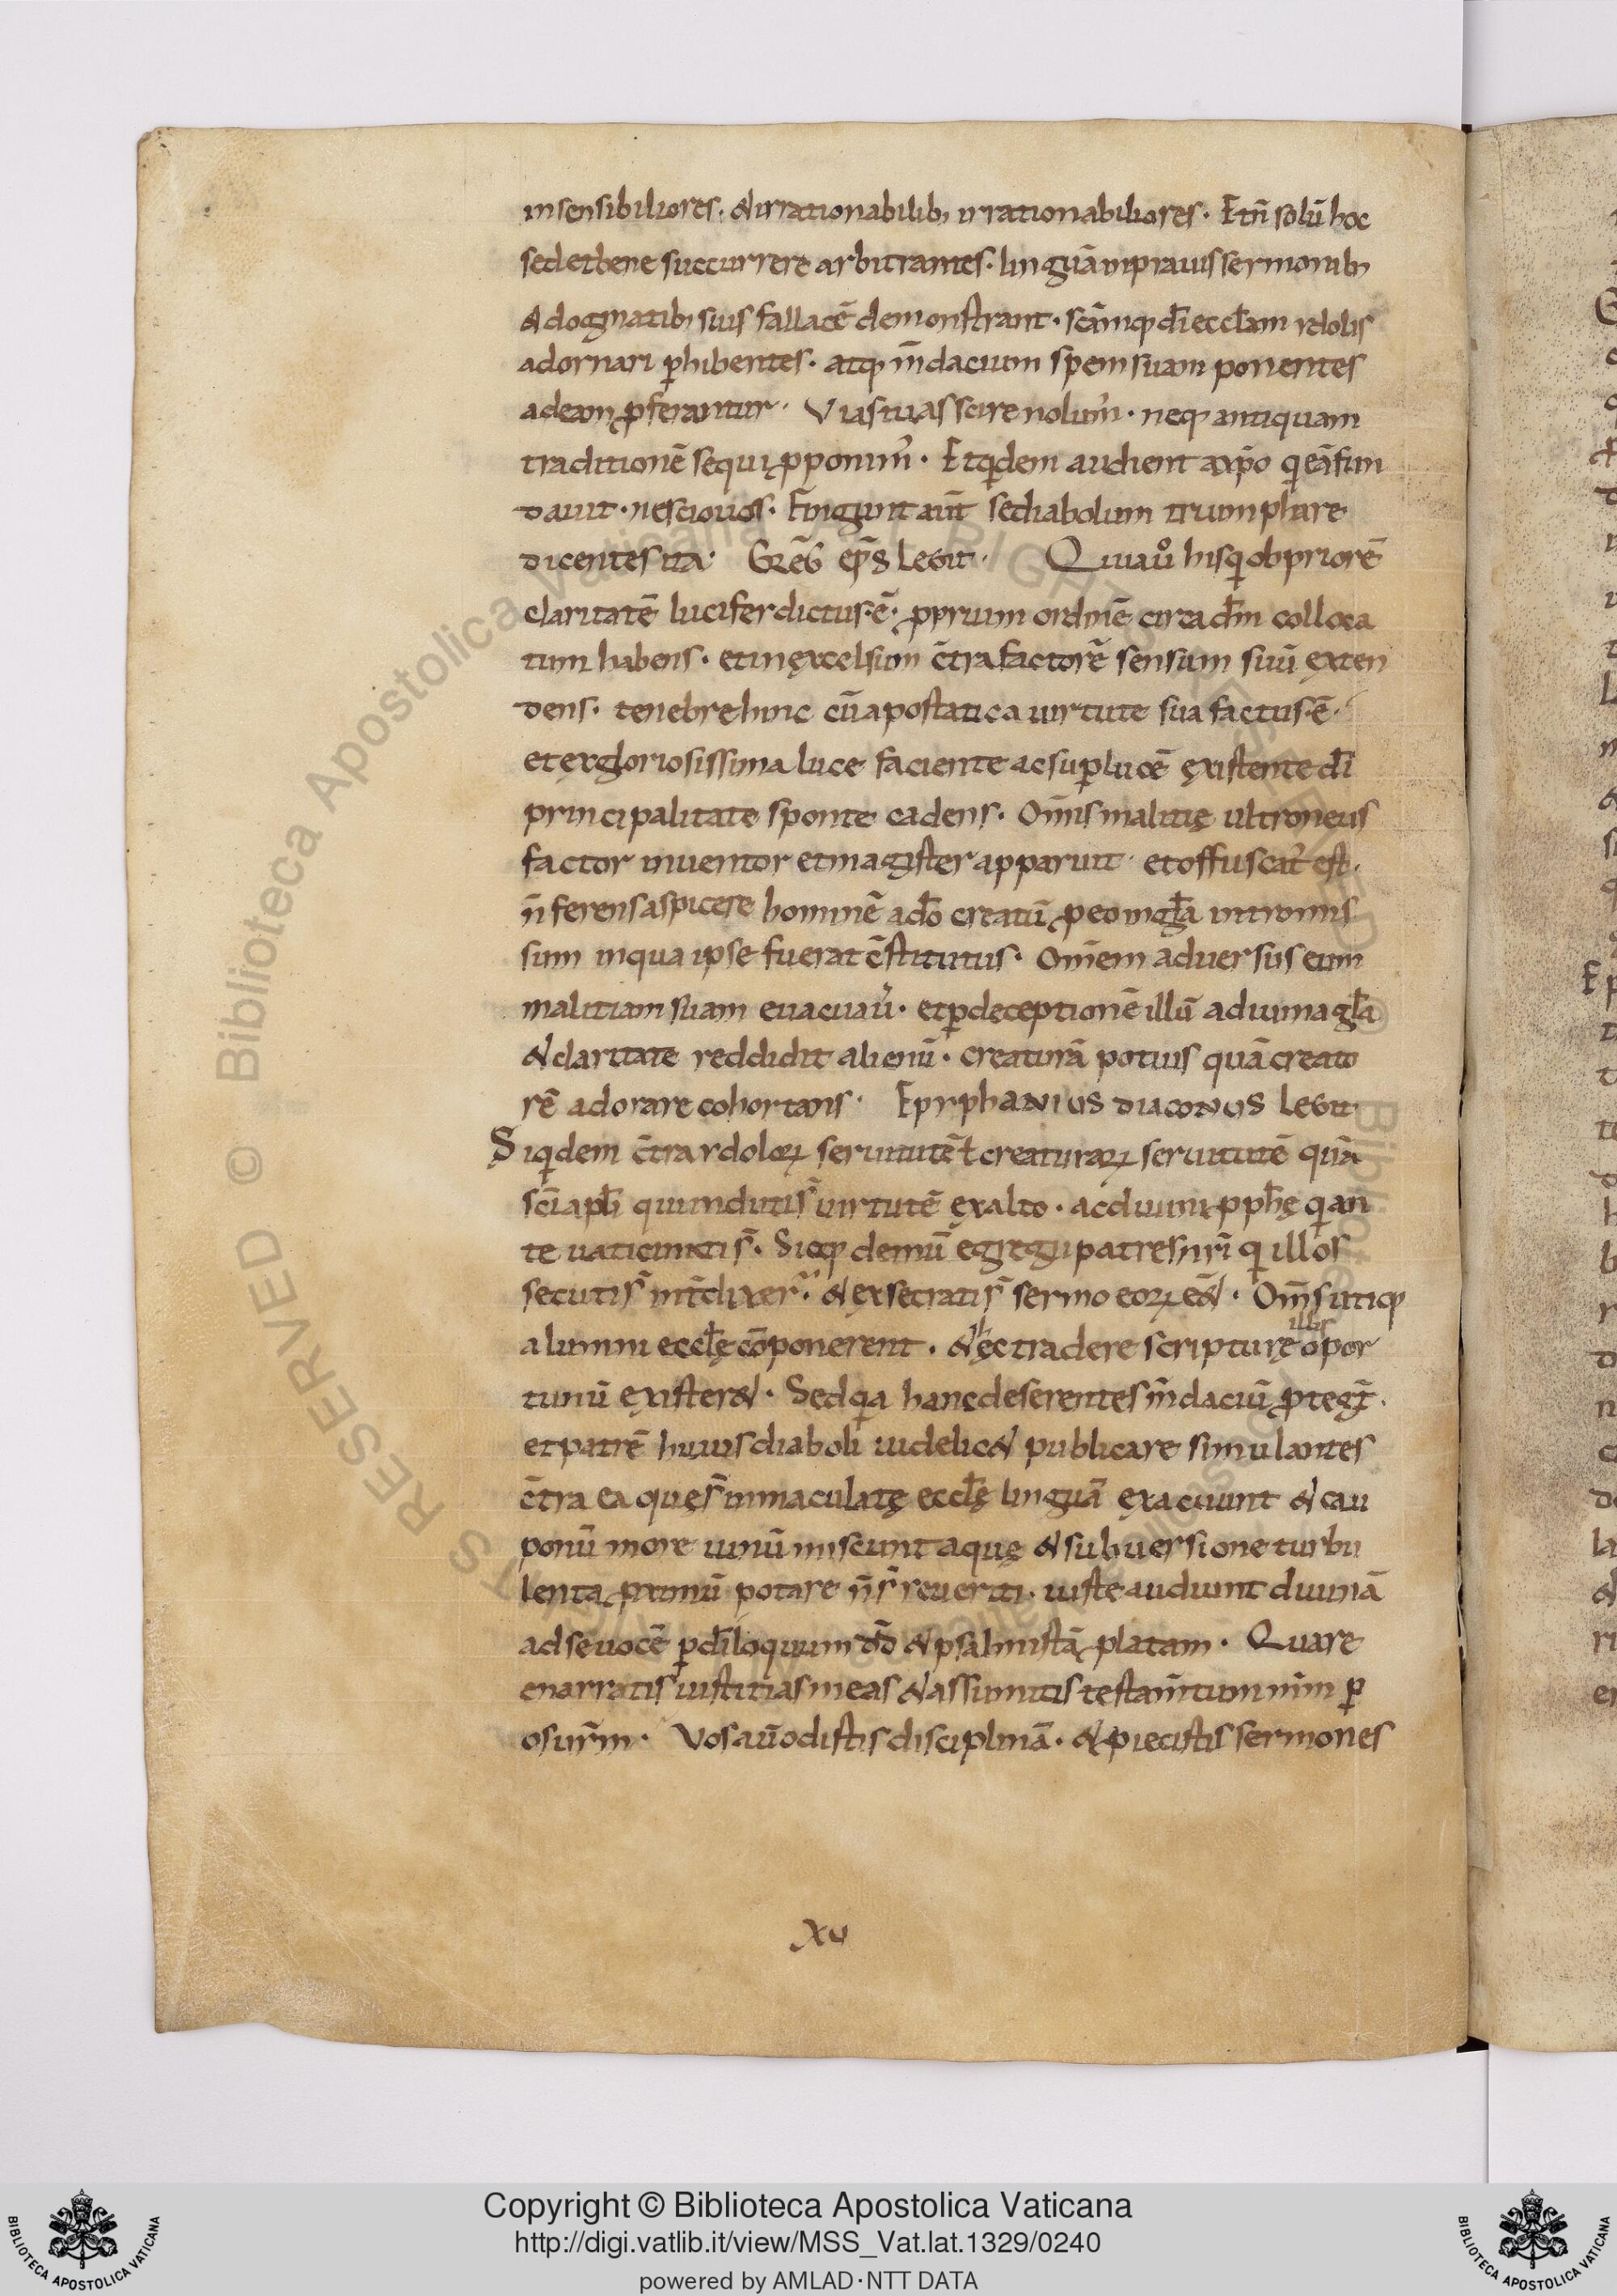 insensibiliores. & irrationabilib; irrationabiliores. Et n̄ solū hoc
sed et bene succurrere arbitrantes. linguā in prauis sermonib;
& dogmatib; suis fallacē demonstrant. scāmq; dī ecclam ydolis
adornari ꝑhibentes. atq; m̄dacium spem suam ponentes
ad eam ꝓferantur. Vias tuas scire nolum'. neq; antiquam
traditionē sequi ꝓponim'. Et qdem audient a xp̄o qi eā fun
dauit. nescio uos. Fingunt aūt se diabolum triumphare
dicentes ita. Grēg ep̄s legit. Qui aūo his qi ob priorē
claritatē lucifer dictus. ē. ꝓprium ordinē circa dm̄ colloca
tum habens. et in excelsum c̄tra factorē sensum suū exten
dens. tenebre hinc cū apostatica uirtute sua factus. ē.
et ex gloriosissima luce faciente ac suꝑ lucē existente dī
principalitate sponte cadens. Om̄is malitię ultroneus
factor inuentor et magister apparuit. et offuscat' est.
n̄ ferens aspicere hominē a dō creatū ꝓ eo in gła intromis
sum in qua ipse fuerat c̄stitutus. Omnem aduersus eum
malitiam suam euacuau'. et ꝑ deceptionē illū a diuina gła
& claritate reddidit alienū. creaturā potius quā creato
rē adorare cohortans. Epyphanius diaconus legit
Siqdem c̄tra ydoloꝝ seruitutē ł creaturaꝝ seruitutē quā
scī apłi qui induti s̄ uirtutē ex alto. ac diuini ꝓphę qi an
te uaticinati s̄. Sicq; demū egregii patres nr̄i qi illos
secuti s̄ int̄dixer̄. & exsecrati s̄ sermo eoꝝ eē&. Om̄s utiq;
alumni ecclę cōponerent. & hęc tradere scripturę illis opor
tunū exister&. Sed qia hanc deserentes m̄daciū ꝓtegt̄.
et patrē huius diaboli uidelic& publicare simulantes
c̄tra ea quę s̄ immaculatę ecclę linguā exacuunt & cau
ponū more uinū miscunt aquę & subuersione turbu
lenta ꝓximū potare n̄ s̄ reueriti. iuste audiunt diuinā
ad se uocē ꝑ diloquium dd̄ & psalmistā ꝓlatam. Quare
enarratis iustitias meas & assumitis testam̄tum mm̄ ꝑ
os ur̄m. Vos aū odistis disciplinā. & ꝓiecistis sermones
xv
Copyright © Biblioteca Apostolica Vaticana
http://digi.vatlib.it/view/MSS_Vat.lat.1329/0240
powered by AMLAD·NTT DATA
BIBLIOTECA APOSTOLICA VATICANA
BIBLIOTECA APOSTOLICA VATICANA